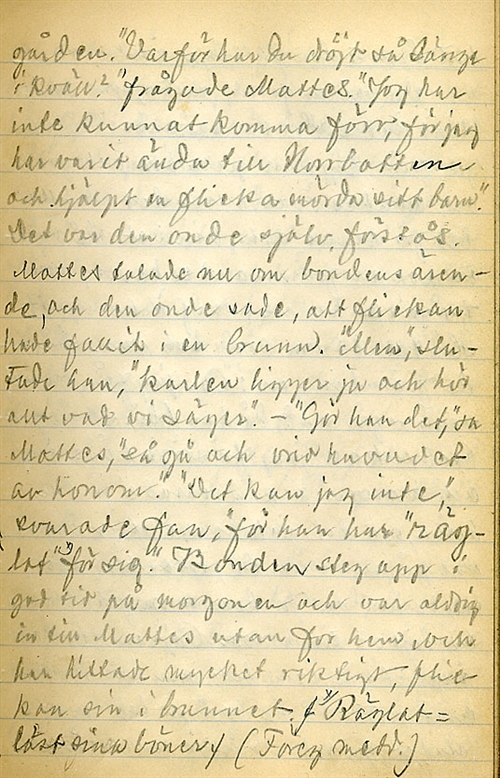 gården. "Varför har du dröjt så länge
i kväll?" frågade Mattes. "Jag har
inte kunnat komma förr, för jag
har varit ända till Norrbotten
och hjälpt en flicka mörda sitt barn."
Det var den onde själv, förstås.
Mattes talade nu om bondens ären-
de, och den onde sade, att flickan
hade fallit i en brunn. "Men", slu-
tade han, "karlen ligger ju och hör
allt vad vi säger". – "Gör han det," sa
Mattes, "så gå och vrid huvudet
av honom." "Det kan jag inte,"
svarade fan, "för han har "räg-
lat" 1) för sig." Bonden steg opp i
god tid på morgonen och var aldrig
in till Mattes utan for hem, och
han hittade mycket riktigt, flic-
kan sin i brunnet. (1) Räglat =
läst sina böner) (Föreg. medd.)